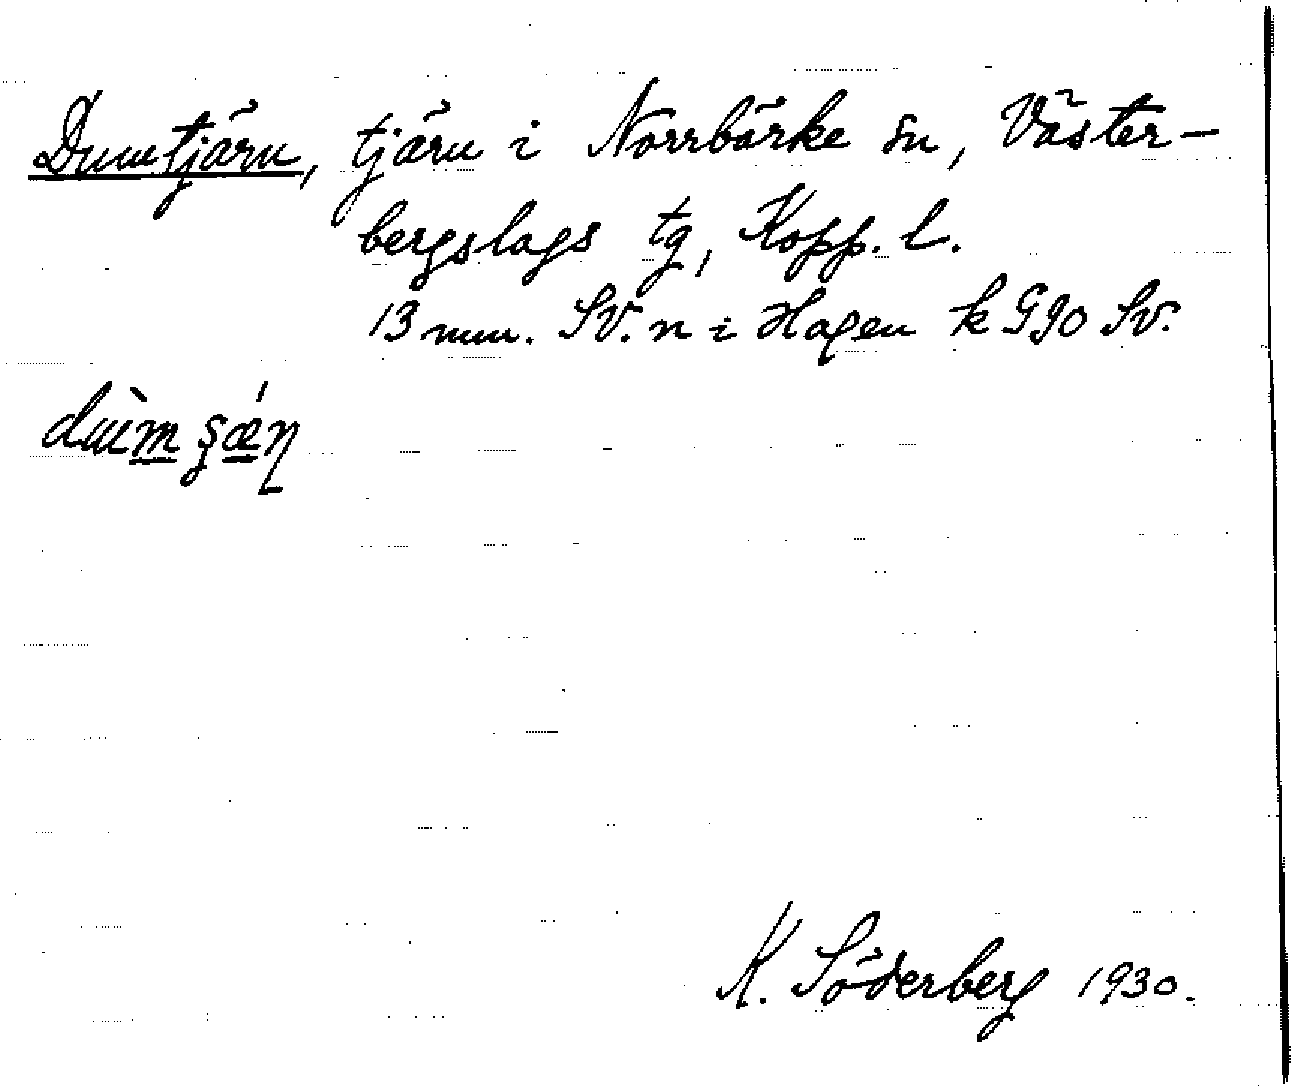 Dumtjärn, tjärn i Norrbärke sn, Väster-
bergslags tg, Kopp. l.
13 mm. SV. n i Hagen k G90 SV.
dùm
K. Söderberg 1930.